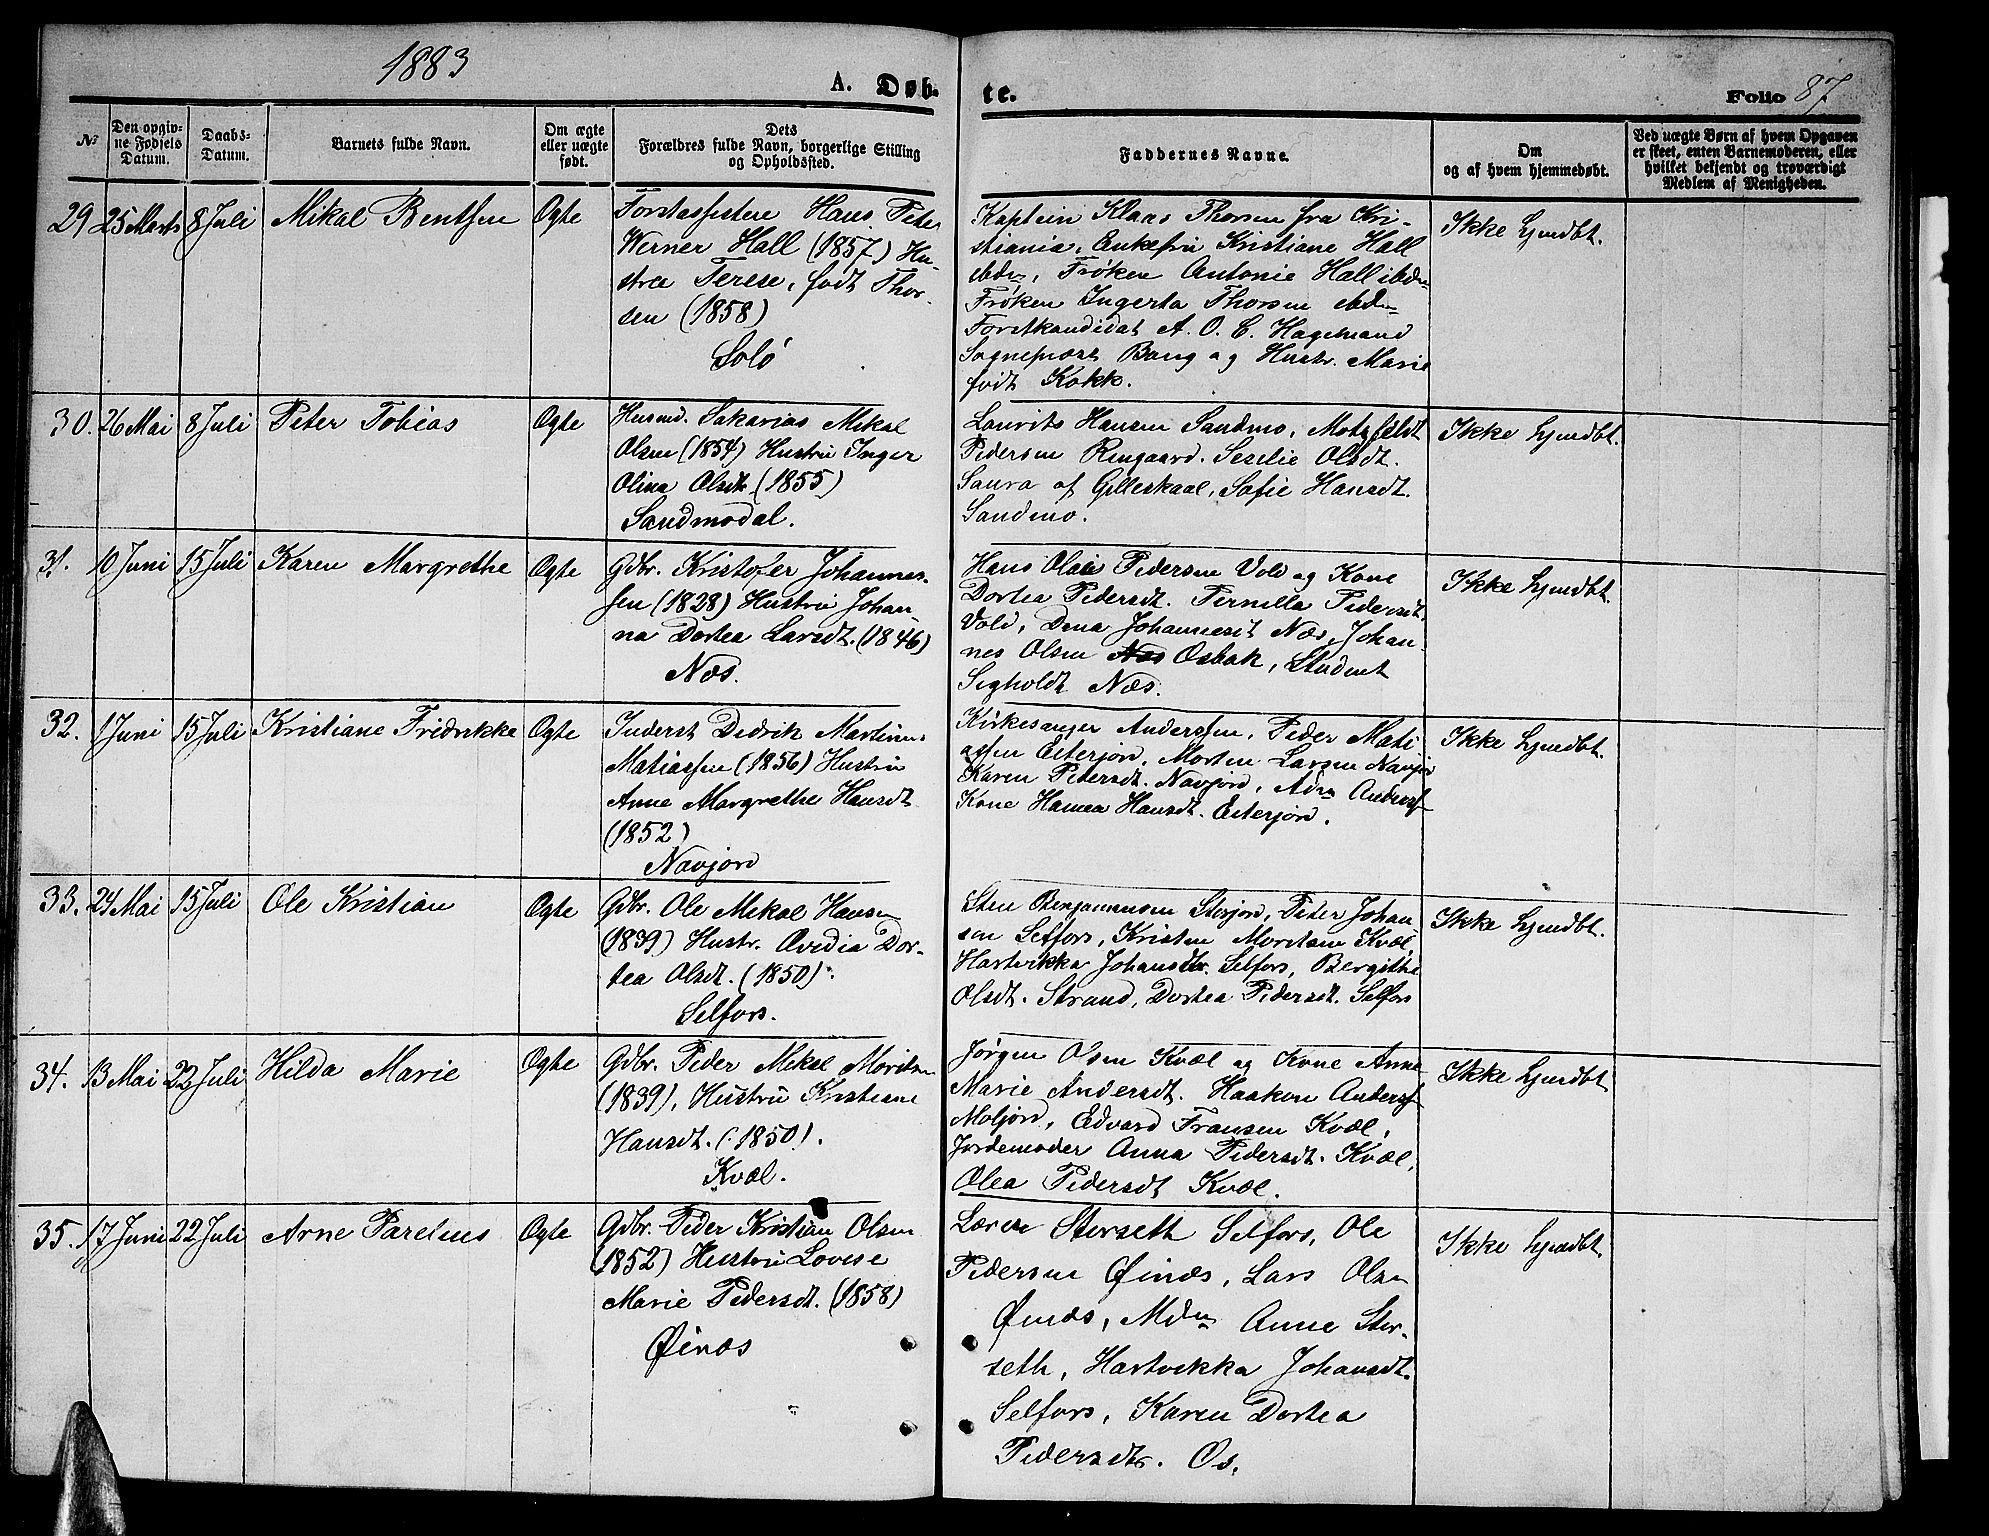 1883
A. Døb-
te.
Folio 87
No
Den opgiv-
ne Fødsels
Datum.
Daabs-
Datum.
Barnets fulde Navn.
Om ægte
eller uægte
født.
Dets
Forældres fulde Navn, borgerlige Stilling
og Opholdssted.
Faddernes Navne.
Om
og af hvem hjemmedøbt.
Ved uægte Børn af hvem Opgaven
er skeet, enten Barnemoderen, eller
hvilket bekjendt og troværdigt
Medlem af Menigheden.
29 25 Marts 8 Juli Mikal Bentsen Ægte
Forstassistent Hans Peter
Werner Hall (1857) Hu-
stru Terese, født Thor-
sen (1858)
Solø
Kaptein Klaus Thorsen fra Kri-
stiania, Enkefru Kristiane Hall
ibdn, Frøken Antonie Hall ibdn
Frøken Ingerta Thorsen ibdn
Forstkandidat A. O. C. Hagemann
Sogneprest Bang og Hustr. Marie
født Kokk.
Ikke hjmdbt.
30. 26 Mai 8 Juli Peter Tobias Ægte
Husmd. Sakarias Mikal
Olsen (1854) Hustru Inger
Olina Olsdt. (1855)
Sandmodal.
Laurits Hansen Sandmo, Motzfeldt
Pedersen Rengaard. Sesilie Olsdt.
Saura af Gilleskaal, Sofie Hansdt.
Sandmo.
Ikke hjmdbt.
31. 10 Juni 15 Juli Karen Margrethe Ægte
Gdbr. Kristofer Johannes-
sen (1828) Hustru Johan-
na Dortea Larsdt. (1846)
Næs.
Hans Olai Pedersen Vold og Kone
Dortea Pedersdt. Pernilla Pedersdt.
Vold, Dena Johannesdt Næs, Johan-
nes Olsen Næs Osbak, Student
Segholdt Næs.
Ikke hjmdbt.
32. 1 Juni 15 Juli Kristiane Fredrikke Ægte
Inderst Dedrik Martinus
Matiassen (1856) Hustru
Anne Margrethe Hansdt
(1852)
Navjord
Kirkesanger Anderssen, Peder Mati-
assen Esterjord, Morten Larsen Navjord
Karen Pedersdt. Navjord, Anderss
Kone Hansdt. Esterjord.
Ikke hjmdbt.
33. 24 Mai 15 Juli Ole Kristian Ægte
Gdbr. Ole Mikal Hansen
(1839) Hustr. Ovedia Dor-
tea Olsdt. (1850).
Selfors.
Sten Benjaminsen Storjord, Peter Johan-
sen Selfors, Kristen Moritsen Kvæl,
Hartvikka Johansdtr. Selfors, Bergitha
Olsdt. Strand, Dortea Pedersdt. Selfors
Ikke hjmdbt.
34. 13 Mai 22 Juli Hilda Marie Ægte
Gdbr. Peder Mikal Moritsen
(1839), Hustru Kristiane
Hansdt. (1850).
Kvæl.
Jørgen Olsen Kvæl og Kone Anne
Marie Andersdt. Haakon Anderss
Moljord, Edvard Fransen Kvæl,
Jordemoder Anna Pedersdt. Kvæl,
Olea Pedersdt Kvæl.
Ikke hjmdbt
35. 17 Juni 22 Juli Arne Parelius Ægte
Gdbr. Peder Kristian Olsen
(1852) Hustru Lovise
Marie Pedersdt. (1858)
Øinæs
Lærer Storseth Selfors, Ole
Pedersen Øinæs, Lars Olsen
Øinæs, Mdm Anne Stor-
seth, Hartvikka Johansdt.
Selfors, Karen Dortea
Pedersdtr. Os.
Ikke hjmdbt.